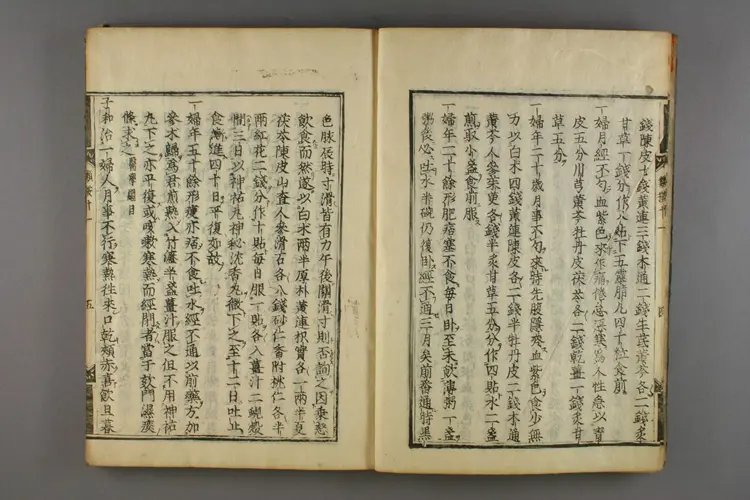 錢陳皮七錢黃連三錢木通二錢生芪黃芩各二錢炙
甘草一錢分作八貼下五靈脂丸四十粒食前
一婦月經不勻血紫色來作痛倦怠惡寒爲人性急以青
皮五分川芎黃芩牡丹皮茯苓各二錢乾薑一錢炙甘
草五分
一婦年二十歲月事不勻來時先腹隱疼血紫色食少無
力以白朮四錢黃連陳皮各二錢半牡丹皮二錢木通
黃芩人參茱萸各錢半炙甘草五分分作四貼水二盞
煎取小盞食前服
一婦年二十餘形肥痞塞不食每日臥至未飲薄粥一盞
粥後必吐水半碗仍復臥經不通三月矣前番通時黑
四
色脉辰時寸滑皆有力午後關滑寸則否詢之因乘怒
飲食而然遂以白朮兩半厚朴黃連枳實各一兩半夏
茯苓陳皮山查人參滑石各八錢砂仁香附桃仁各半
兩紅花二錢分作十貼每日服一貼各入薑汁二蜆殼
間三日以神祐丸神秘沈香丸微下之至十二日吐止
食漸進四十日平復如故
一婦年五十餘形瘦亦痞不食吐水經不通以前藥方加
參朮歸爲君煎熟入竹瀝半盞薑汁服之但不用神祐
丸下之亦平復或咳嗽寒熱而經閉者當于欬門濕痰
條求之 醫學綱目
子和治一婦人月事不行寒熱往來口乾頰赤喜飲旦暮
五